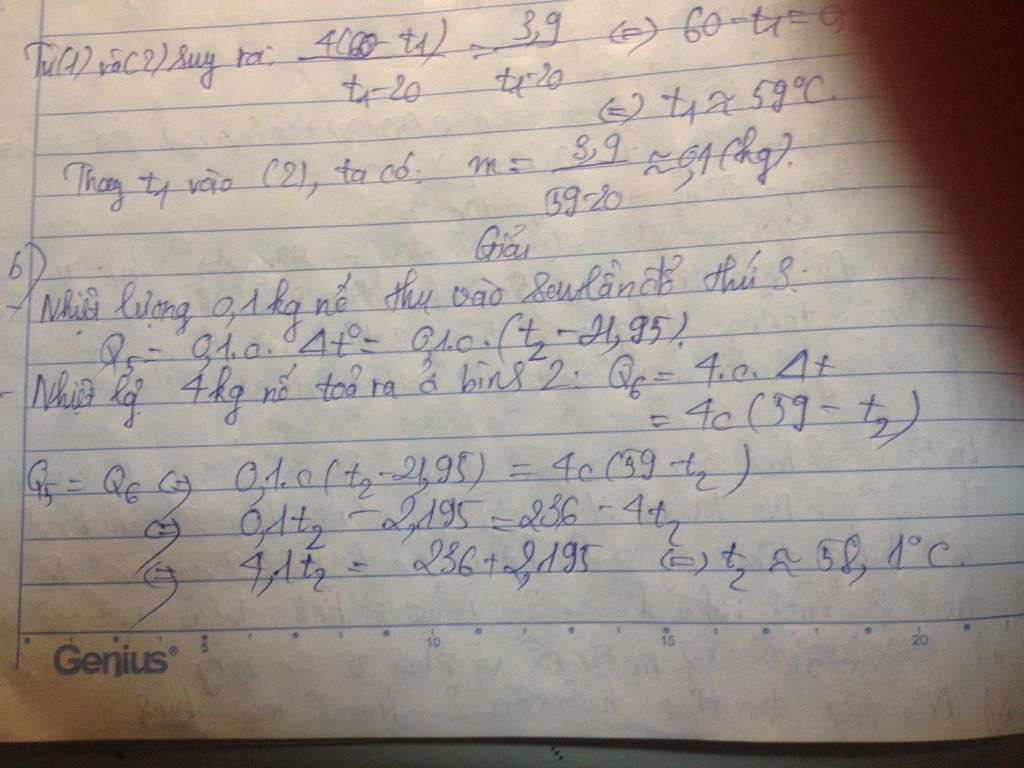 Từ (1) và (2) suy ra: 4(60 - t1) / t1-20 = 3,9 / t1-20 (=) 60 - t1 = 0,
(=) t1 ≈ 59°C.
Thay t1 vào (2), ta có: m = 3,9 / 59-20 ≈ 0,1 (kg).
Giải
b)
- Nhiệt lượng 0,1 kg nc thu vào sau lần đổ thứ 3.
Q5 = 0,1.c. Δt° = 0,1.c.(t2 - 21,95).
- Nhiệt lg 4 kg nc toả ra ở bình 2: Q6 = 4.c. Δt
= 4c (59 - t2)
Q5 = Q6 (=) 0,1.c (t2 - 21,95) = 4c (59 - t2)
(=) 0,1t2 - 2,195 = 236 - 4t2
(=) 4,1t2 = 236 + 2,195 (=) t2 ≈ 58,1°C.
5 10 15 20
Genius®